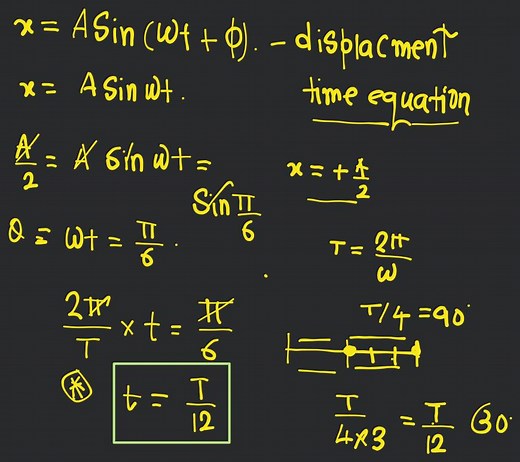 x = A Sin (ωt + φ). - displacment
x = A Sin ωt.
time equation
A/2 = A Sin ωt =
Sin π/6
x = + A/2
θ = ωt = π/6 .
T = 2π/ω
2π/T × t = π/6
T/4 = 90°
t = T/12
T/4×3 = T/12 30°